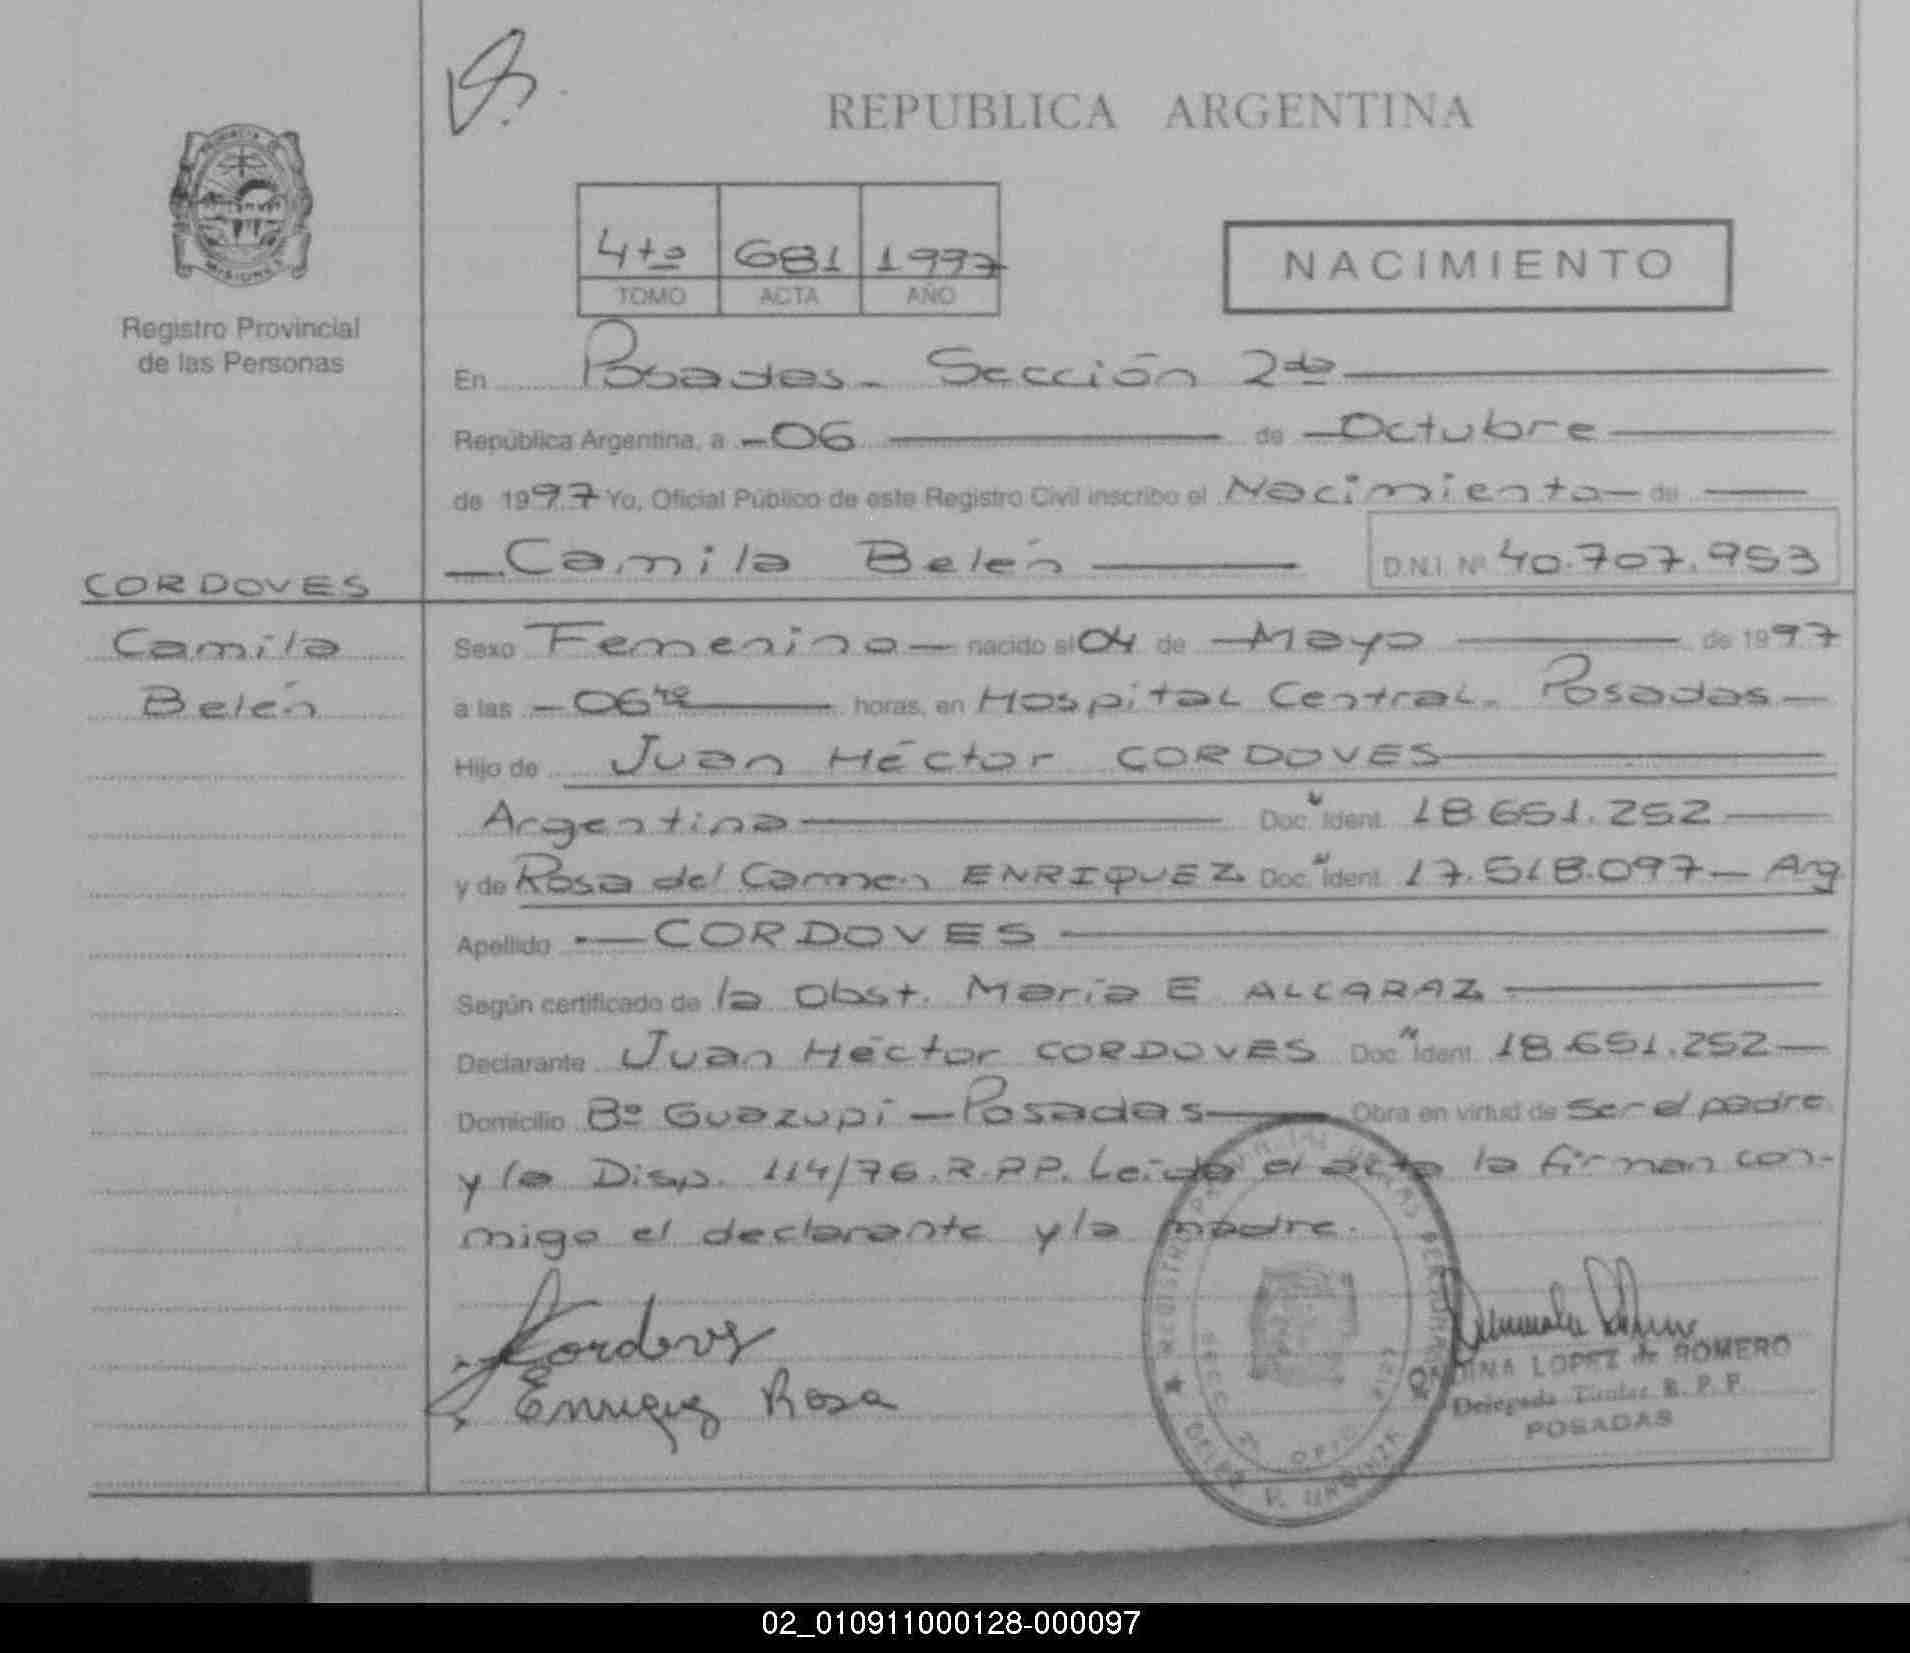 REPUBLICA ARGENTINA
MISIONES
4to 681 1997
TOMO ACTA AÑO
NACIMIENTO
Registro Provincial
de las Personas
En Posadas - Sección 2da
República Argentina, a -06 de Octubre
de 1997 Yo, Oficial Público de este Registro Civil inscribo el Nacimiento de
Camila Belén D.N.I. Nº 40.707.953
CORDOVES
Camila
Belén
Sexo Femenino nacido el 04 de Mayo de 1997
a las -06 horas, en Hospital Central - Posadas
Hijo de Juan Héctor CORDOVES
Argentina Doc. Ident. 18.651.252
y de Rosa del Carmen ENRIQUEZ Doc. Ident. 17.518.097 - Arg
Apellido CORDOVES
Según certificado de la Obst. María E ALCARAZ
Declarante Juan Héctor CORDOVES Doc. Ident. 18.651.252
Domicilio Bº Guazupi - Posadas Obra en virtud de ser el padre
y la Disp. 114/76.R.P.P. Leída el acta la firman con-
migo el declarante y la madre.
Cordoves
Enriquez Rosa
LOPEZ de ROMERO
Delegada Titular R. P. P.
POSADAS
02_010911000128-000097